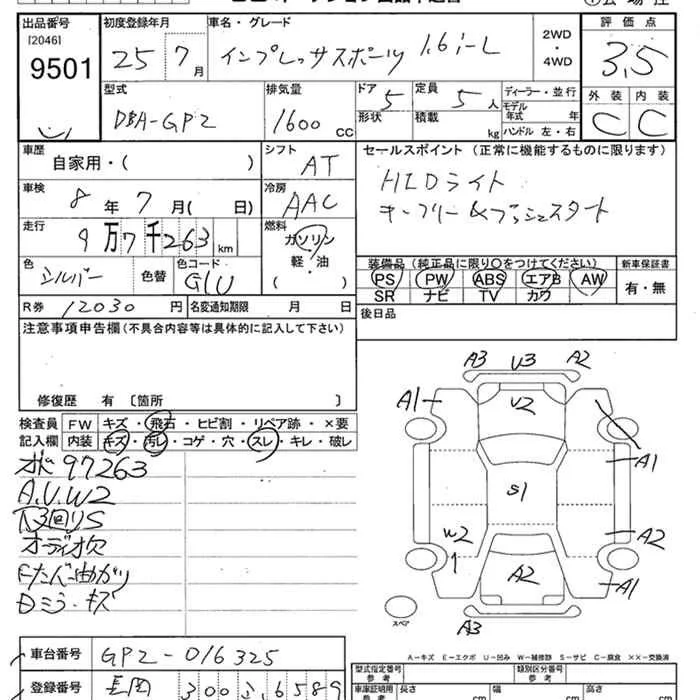 出品番号
[2046]
9501
初度登録年月
25 7月
車名・グレード
インプレッサスポーツ 1.6i-L
2WD
・
4WD
評価点
3.5
外装 内装
C C
型式
DBA-GP2
排気量
1600 CC
ドア 5
形状
定員 5人
積載 kg
ディーラー・並行
モデル
年式 年
ハンドル 左・右
車歴
自家用・( )
シフト
AT
セールスポイント (正常に機能するものに限ります)
HIDライト
キーフリー&プッシュスタート
車検
8年 7月( 日)
冷房
AAC
走行
9万7千263km
燃料
ガソリン
・
軽・油
( )
色
シルバー
色替
色コード
G1U
装備品 (純正品に限り○をつけてください)
PS PW ABS エアB AW
SR ナビ TV カワ
新車保証書
有・無
R券 12030円
名変通知期限 月 日
後日品
注意事項申告欄(不具合内容等は具体的に記入して下さい)
修復歴 有 〔箇所 〕
検査員
記入欄
FW キズ・飛石・ヒビ割・リペア跡・×要
内装 キズ・汚レ・コゲ・穴・スレ・キレ・破レ
97263
A.U.W2
下回りS
オーディオ欠
Dミラーキズ
A3 U3 A2
A1
U2
A1
S1
W2
1
A2
A2
A1
A3
スペア
A－キズ E－エクボ U－凹み W－補修跡 S－サビ C－腐食 ××－交換済
車台番号
GP2-016325
登録番号
長岡 300 ふ 6589
型式指定番号
参考
類別区分番号
参考
車庫証明用
参考
長さ cm
幅 cm
高さ cm